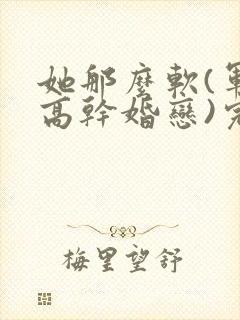 她那麼軟(軍
高幹婚戀)完
梅里望舒